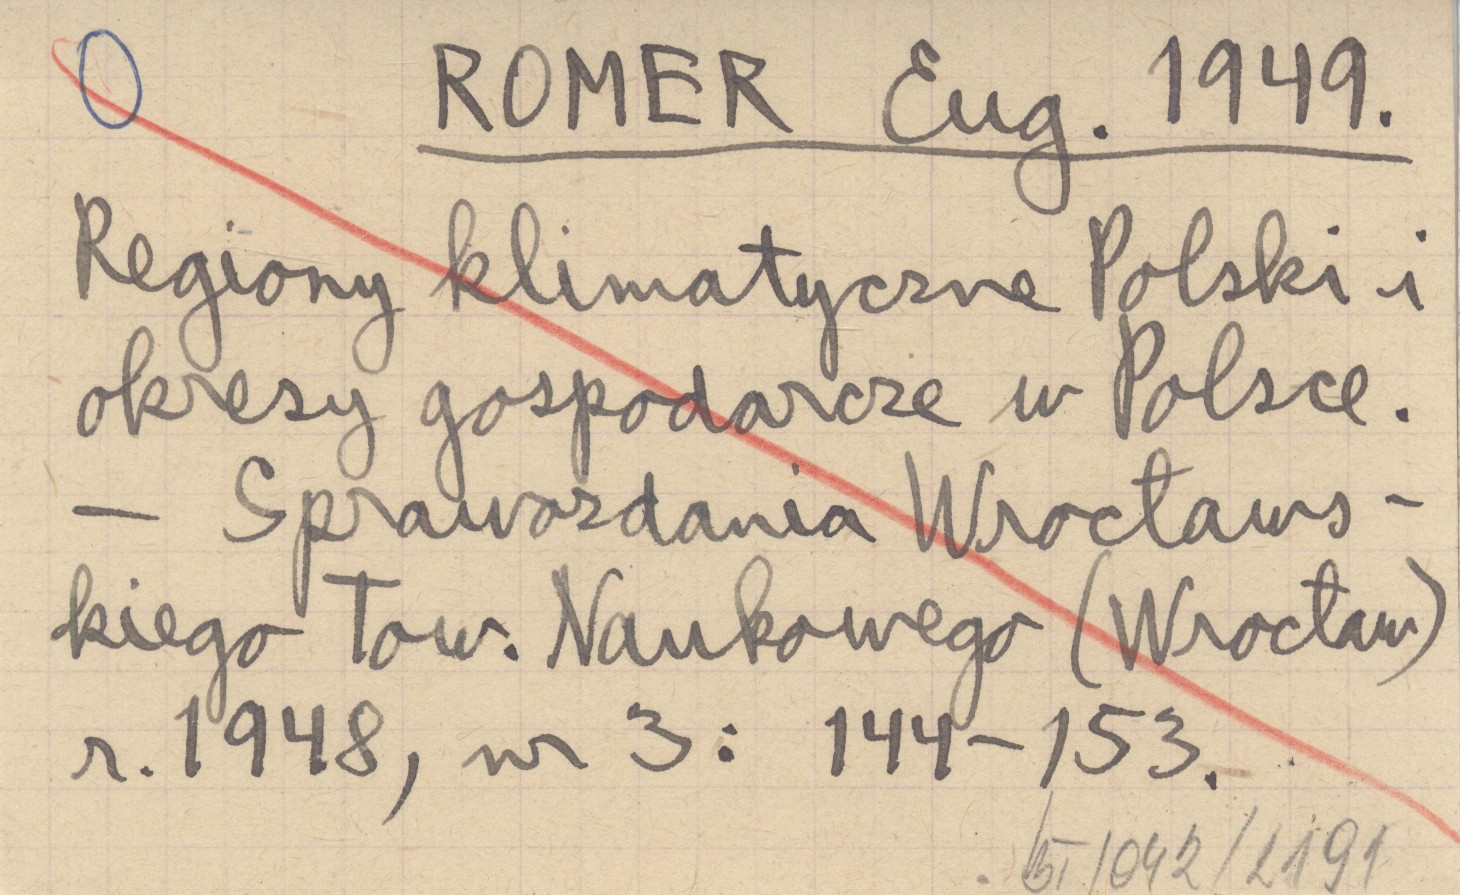 ROMER Eug. 1949.
Regiony klimatyczne Polski i
okresy gospodarcze w Polsce.
— Sprawozdania Wrocławs-
kiego Tow. Naukowego (Wrocław)
r. 1948, nr 3: 144-153.
/1042/2191